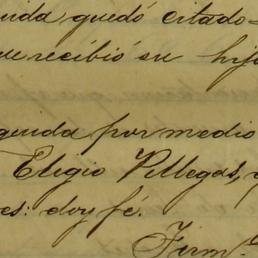 uida quedó citado=
ue recibió su hij
guida por medio
Eligio Villegas, y
es: doy fé.
Firmº.